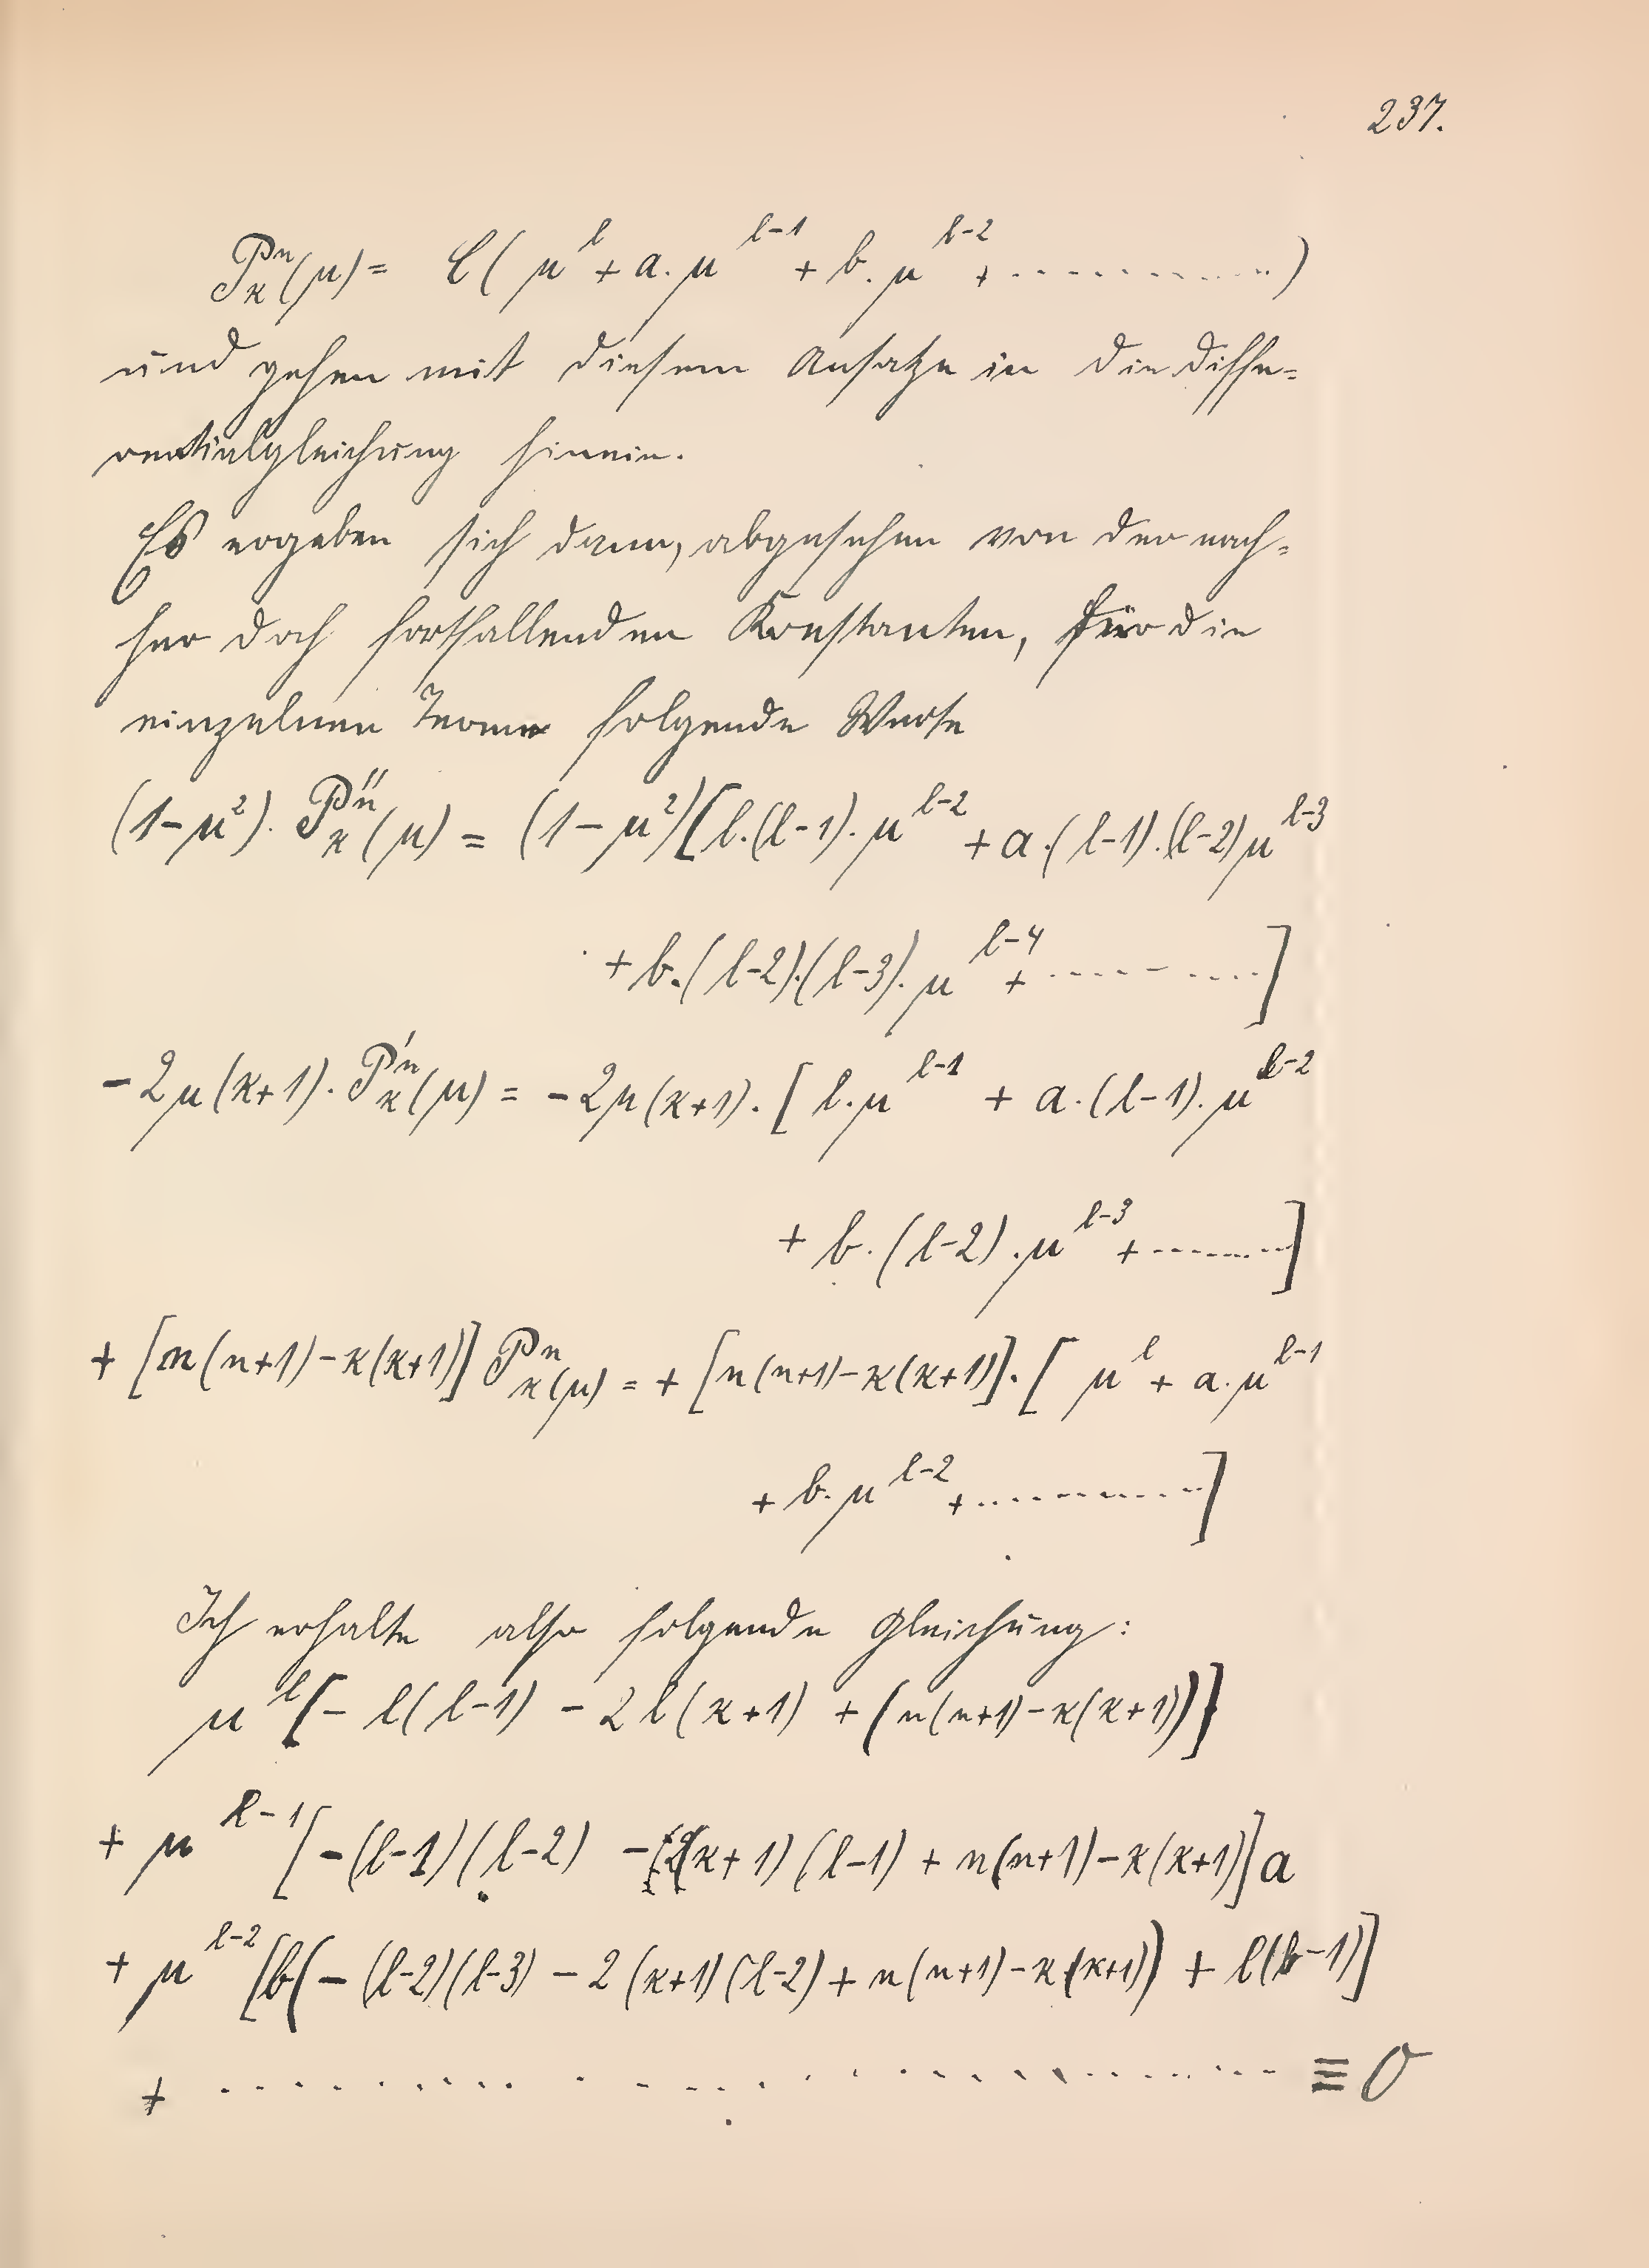 237.
𝒫ⁿ_κ(μ) = C( μ^l + a. μ^{l-1} + b. μ^{l-2} + ............ )
und gehen mit diesem Ansatze in die Diffe=
rentialgleichung hinein.
Es ergeben sich dann, abgesehen von der nach=
her doch fortfallenden Konstanten, für die
einzelnen Terme folgende Werte
(1-μ²). 𝒫''ⁿ_κ(μ) = (1-μ²)[l.(l-1). μ^{l-2} + a.(l-1).(l-2)μ^{l-3}
+ b.(l-2).(l-3). μ^{l-4} + ............ ]
- 2μ(κ+1). 𝒫'ⁿ_κ(μ) = -2μ(κ+1). [ l.μ^{l-1} + a.(l-1). μ^{l-2}
+ b.(l-2).μ^{l-3} + ............]
+ [n(n+1)-κ(κ+1)] 𝒫ⁿ_κ(μ) = + [n(n+1)-κ(κ+1)]. [ μ^l + a.μ^{l-1}
+ b.μ^{l-2} + ............ ]
Ich erhalte also folgende Gleichung:
μ^l [- l(l-1) - 2l(κ+1) + (n(n+1)-κ(κ+1))]
+ μ^{l-1} [-(l-1)(l-2) - 2(κ+1)(l-1) + n(n+1)-κ(κ+1)] a
+ μ^{l-2} [b(-(l-2)(l-3) - 2(κ+1)(l-2) + n(n+1)-κ(κ+1)) + l(l-1)]
+ ............ ≡ 0